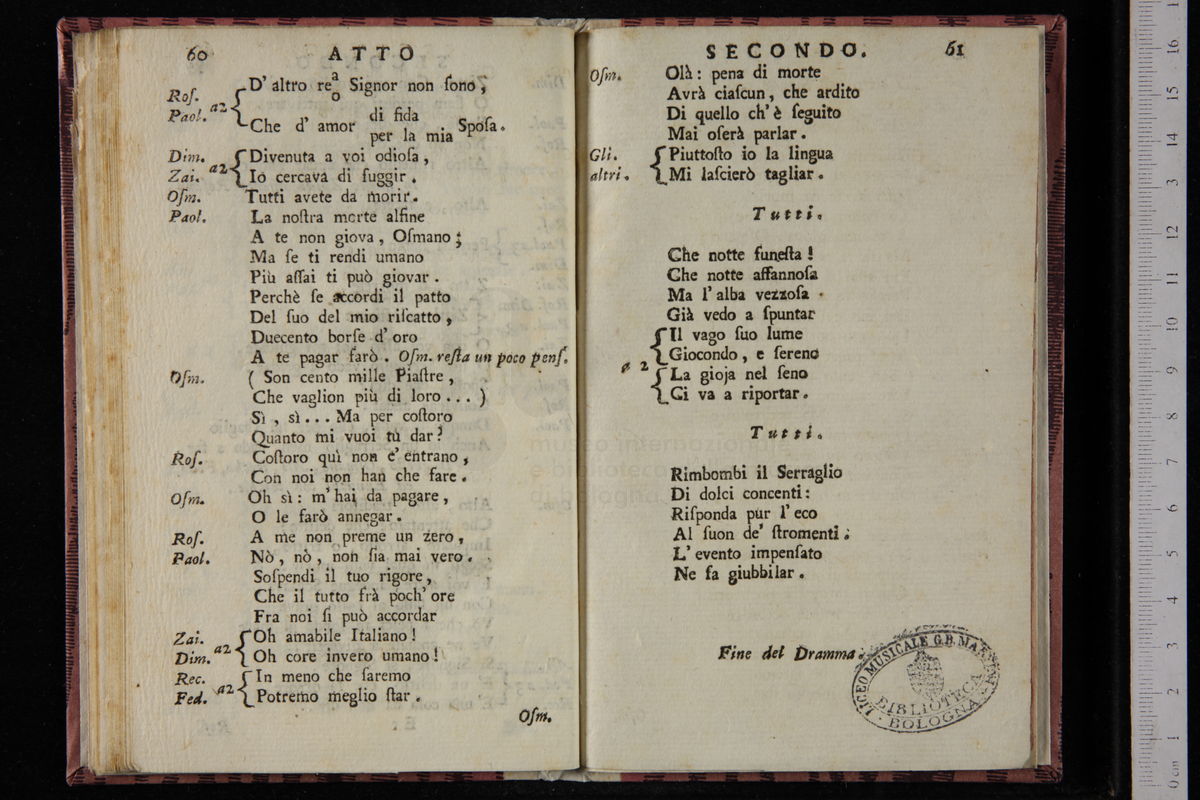 60 ATTO
Roſ. Paol. a2 D' altro reª₀ Signor non ſono,
Che d' amor di fida / per la mia Spoſa.
Dim. Divenuta a voi odioſa,
Zai. a2 Io cercava di fuggir.
Oſm. Tutti avete da morir.
Paol. La noſtra morte alfine
A te non giova, Oſmano;
Ma ſe ti rendi umano
Più aſſai ti può giovar.
Perchè ſe accordi il patto
Del ſuo del mio riſcatto,
Duecento borſe d' oro
A te pagar farò. Oſm. reſta un poco penſ.
Oſm. (Son cento mille Piaſtre,
Che vaglion più di loro...)
Sì, sì... Ma per coſtoro
Quanto mi vuoi tù dar?
Roſ. Coſtoro quì non e' entrano,
Con noi non han che fare.
Oſm. Oh sì: m' hai da pagare,
O le farò annegar.
Roſ. A me non preme un zero,
Paol. Nò, nò, non ſia mai vero.
Soſpendi il tuo rigore,
Che il tutto frà poch' ore
Fra noi ſi può accordar
Zai. Oh amabile Italiano!
Dim. a2 Oh core invero umano!
Rec. In meno che ſaremo
Fed. a2 Potremo meglio ſtar.
Oſm.
SECONDO. 61
Oſm. Olà: pena di morte
Avrà ciaſcun, che ardito
Di quello ch' è ſeguito
Mai oſerà parlar.
Gli. Piuttoſto io la lingua
altri. Mi laſcierò tagliar.
Tutti.
Che notte funeſta!
Che notte affannoſa
Ma l' alba vezzoſa
Già vedo a ſpuntar
Il vago ſuo lume
Giocondo, e ſereno
a 2 La gioja nel ſeno
Ci va a riportar.
Tutti.
Rimbombi il Serraglio
Di dolci concenti:
Riſponda pur l' eco
Al ſuon de' ſtromenti:
L' evento impenſato
Ne fa giubbilar.
Fine del Dramma.
LICEO MUSICALE G.B. MARTINI
BIBLIOTECA
BOLOGNA
museo internazionale
e biblioteca
di bologna